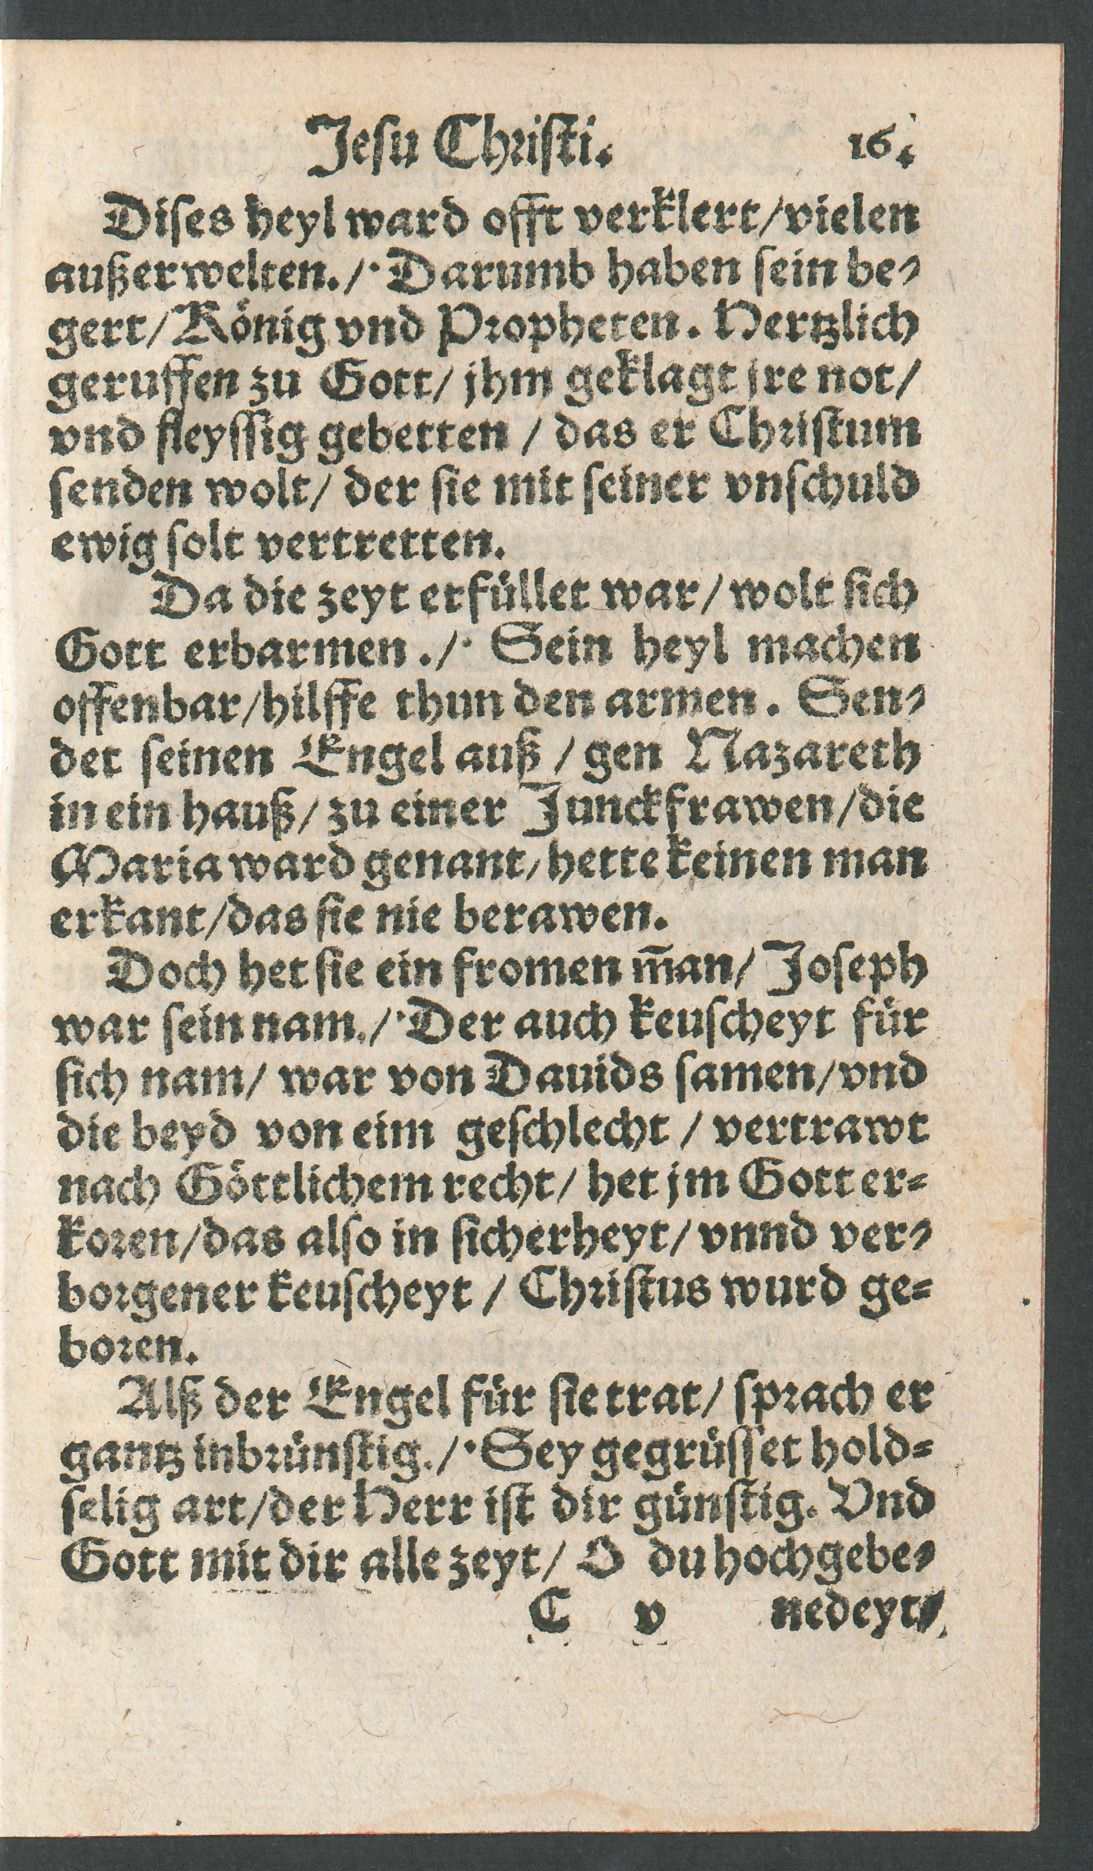 Jesu Christi. 16.
Dises heyl ward offt verklert/vielen
außerwelten./· Darumb haben sein be-
gert/König vnd Propheten. Hertzlich
geruffen zu Gott/ jhm geklagt jre not/
vnd fleyssig gebetten / das er Christum
senden wolt/ der sie mit seiner vnschuld
ewig solt vertretten.
Da die zeyt erfüllet war/ wolt sich
Gott erbarmen ./· Sein heyl machen
offenbar/hilffe thun den armen. Sen-
det seinen Engel auß / gen Nazareth
in ein hauß/ zu einer Junckfrawen/die
Maria ward genant/hette keinen man
erkant/das sie nie berawen.
Doch het sie ein fromen m̄an/ Joseph
war sein nam./·Der auch keuscheyt für
sich nam/ war von Dauids samen/vnd
die beyd von eim geschlecht / vertrawt
nach Göttlichem recht/ het jm Gott er-
koren/das also in sicherheyt/ vnnd ver-
borgener keuscheyt / Christus wurd ge-
boren.
Alß der Engel für sie trat/ sprach er
gantz inbrünstig./·Sey gegrüsset hold-
selig art/der Herr ist dir günstig. Vnd
Gott mit dir alle zeyt/ O du hochgebe-
C v nedeyt/